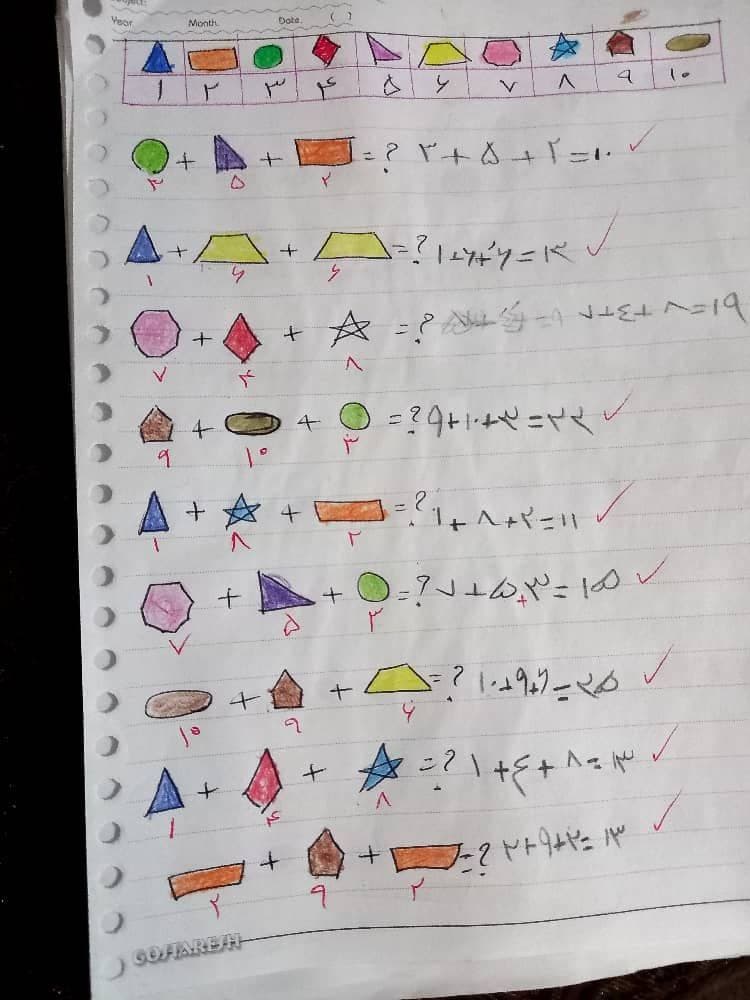 Year. Month. Date. ( )
۱ ۲ ۳ ۴ ۵ ۶ ۷ ۸ ۹ ۱۰
+ + = ? ۳+۵+۲=۱۰
۳ ۵ ۲
+ + = ? ۱+۶+۶=۱۳
۱ ۶ ۶
+ + = ? ۷+۴+۸=۱۹
۷ ۴ ۸
+ + = ? ۹+۱۰+۳=۲۲
۹ ۱۰ ۳
+ + = ? ۱+۸+۲=۱۱
۱ ۸ ۲
+ + = ? ۷+۵+۳=۱۵
۷ ۵ ۳
+ + = ? ۱۰+۹+۶=۲۵
۱۰ ۹ ۶
+ + = ? ۱+۴+۸=۱۳
۱ ۴ ۸
+ + = ? ۲+۹+۲=۱۳
۲ ۹ ۲
GOSTARESH